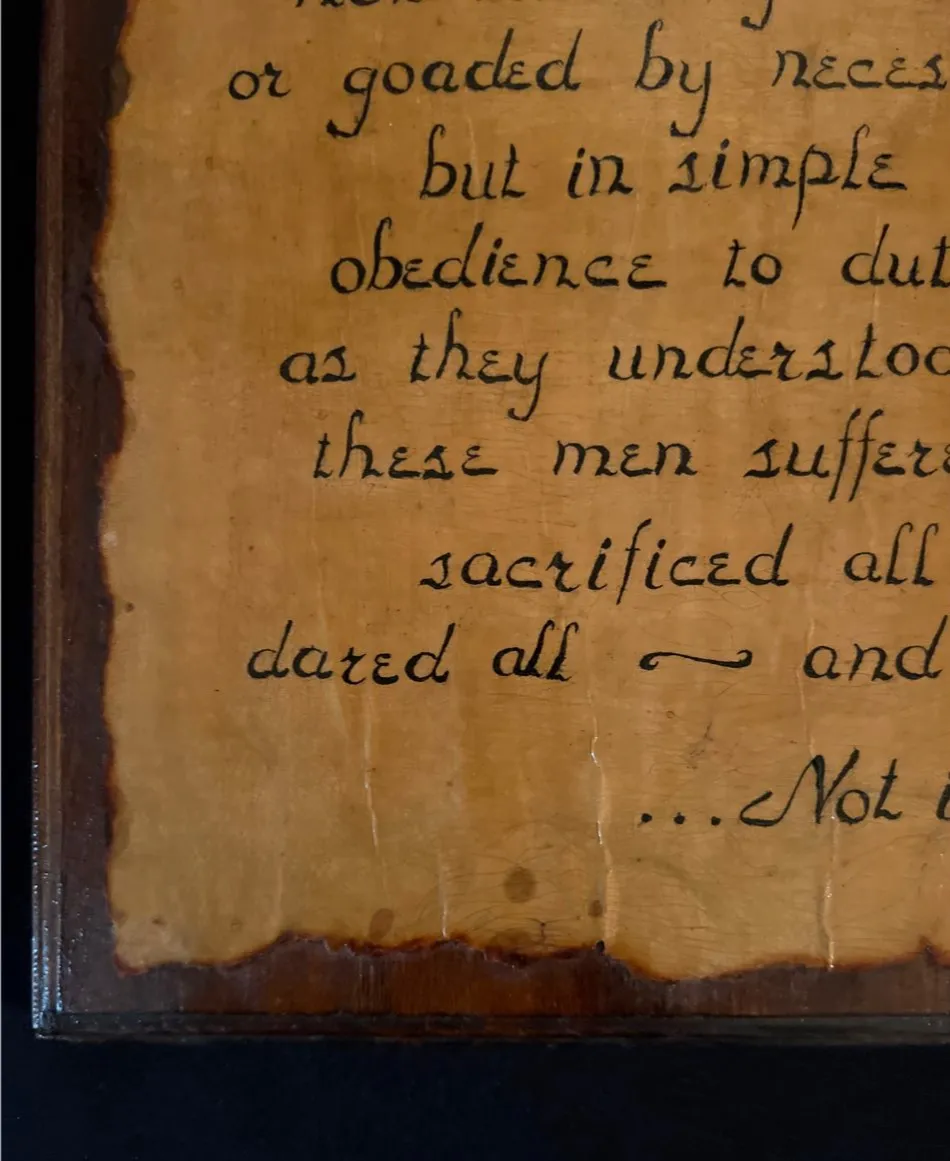 or goaded by neces
but in simple
obedience to dut
as they understoo
these men suffere
sacrificed all
dared all ~ and
...Not i